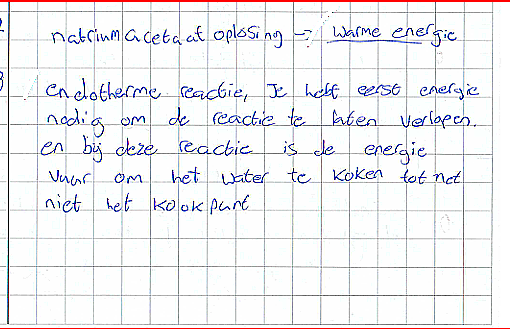 natriumacetaat oplossing → warme energie
endotherme reactie, Je hebt eerst energie
nodig om de reactie te laten verlopen.
en bij deze reactie is de energie
vuur om het water te koken tot net
niet het kookpunt